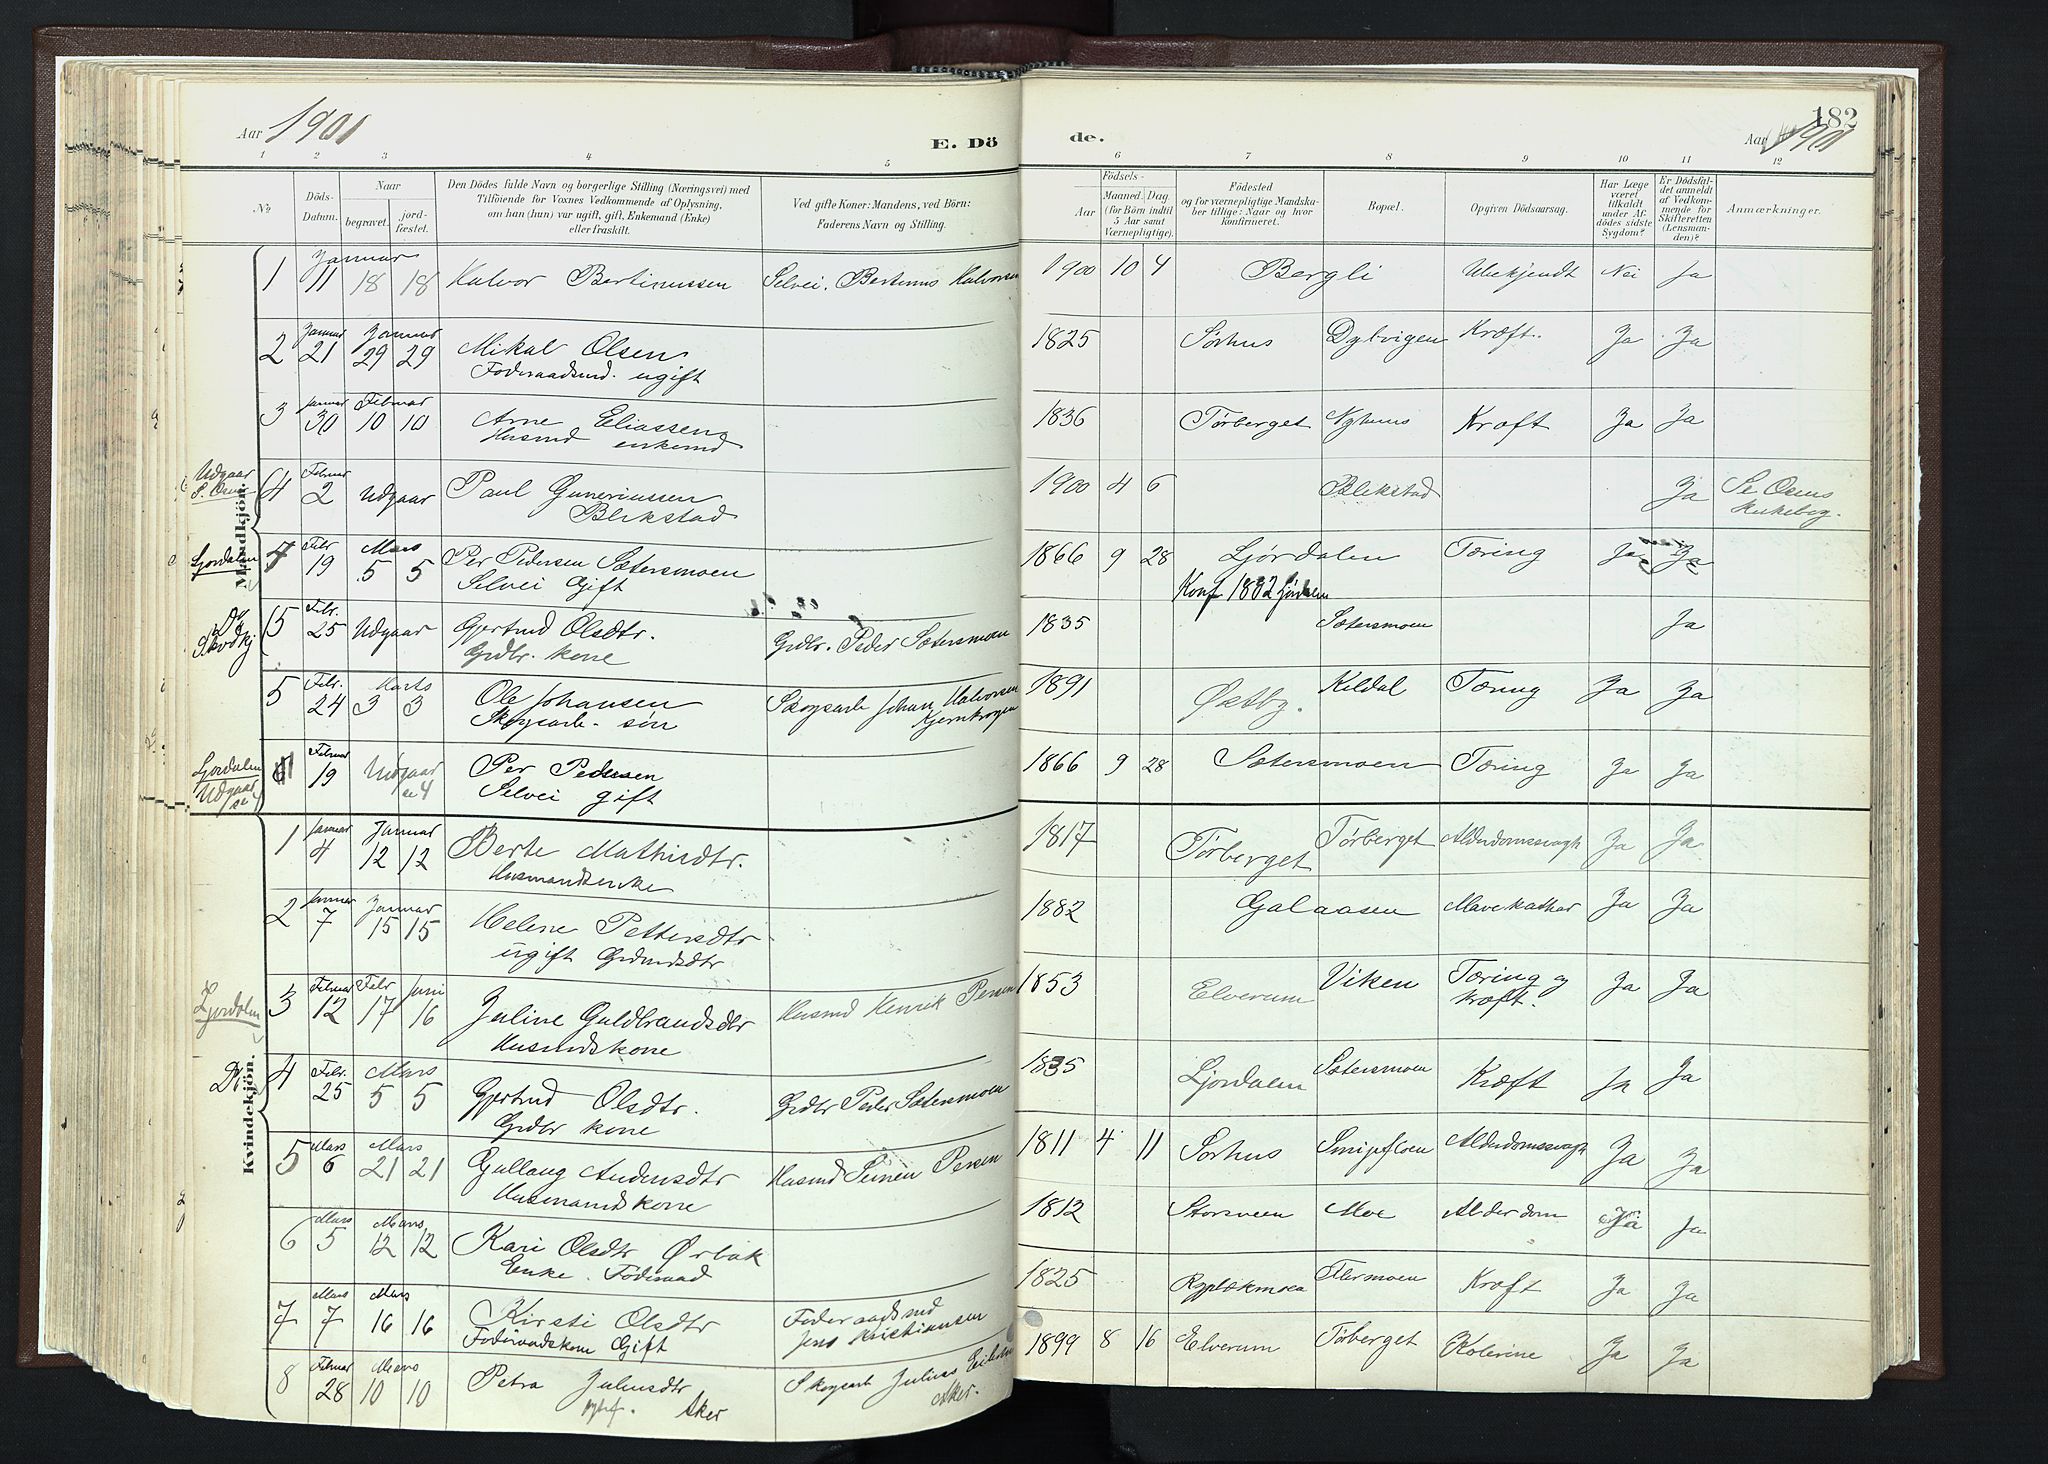 Aar 1901
E. Dö
de.
182
Aar 1901
1 2 3 4 5 6 7 8 9 10 11 12
№
Döds-Datum.
Naar
begravet.
jord-fæstet.
Den Dödes fulde Navn og borgerlige Stilling (Næringsvei) med
Tilföiende för Voxnes Vedkommende af Oplysning,
om han (hun) var ugift, gift, Enkemand (Enke)
eller fraskilt.
Ved gifte Koner: Mandens, ved Börn:
Faderens Navn og Stilling.
Födsels-
Aar
Maaned. Dag.
(for Börn indtil
5 Aar samt
Værnepligtige).
Födested
og for værnepligtige Mandska-
ber tillige: Naar og hvor
konfirmeret.
Bopæl.
Opgiven Dödsaarsag.
Har Læge
været
tilkaldt
under Af-
dödes sidste
Sygdom?
Er Dödsfal-
det anmeldt
af Vedkom-
mende for
Skifteretten
(Lensman-
den)?
Anmærkninger.
Mandkjön.
1 Januar 11 18 18 Halvor Bertinussen Selvei. Bertinus Halvorsen 1900 10 4 Bergli Ubekjendt Nei Ja
2 Januar 21 Januar 29 29 Mikal Olsen 1825 Sørhus Dylvigen Kræft. Ja Ja
Foderaadsmd. ugift
3 Januar 30 Februar 10 10 Arne Eliassen 1836 Tørberget Nyhuus Kræft Ja Ja
Husmd enkemd
Udgaar
4 Februar 2 Udgaar Paul Guneriussen 1900 4 6 Blikstad Ja Se Osens
Blikstad Kirkebog.
Ljordalen 4 Febr 19 Mars 5 5 Per Pedersen Sætersmoen 1866 9 28 Ljørdalen Tæring Ja Ja
Selvei Gift Konf 1882 Ljørdalen
5 Febr. 25 Udgaar Gjertrud Olsdtr. Grdbr. Peder Sætersmoen 1835 Sætersmoen Ja
Grdbr. kone
5 Febr. 24 Marts 3 3 Ole Johansen Skogsarb Johan Halvorsen 1891 Østby. Kildal Tæring Ja Ja
Skogsarb. søn
Ljordalen 6 Februar 19 Udgaar Per Pedersen 1866 9 28 Sætersmoen Tæring Ja Ja
Udgaar se 4 se 4 Selvei gift
Kvindekjön.
1 Januar 4 Januar 12 12 Berte Mathisdtr. 1817 Tørberget Tørberget Alderdomssvagh Ja Ja
Husmandsenke
2 Januar 7 Januar 15 15 Helene Pettersdtr 1882 Galaasen Mavekathar Ja Ja
ugift Grdmdsdtr
Ljordalen 3 Februar 12 Febr 17 Juni 16 Juline Guldbrandsdtr Husmd Henrik Persen 1853 Elverum Viken Tæring og Kræft. Ja Ja
Husmdskone
Do. 4 Febr. 25 Mars 5 5 Gjertrud Olsdtr. Grdbr Peder Sætersmoen 1835 Ljordalen Sætersmoen Kræft Ja Ja
Grdbr kone
5 Mars 6 Mars 21 21 Gullaug Andersdtr Husmd Persen 1811 4 11 Sørhus Alderdomssvagh Ja Ja
Husmandskone
6 Mars 5 Mars 12 12 Kari Olsdtr Ørbak 1812 Storsveen Moe Alderdom Ja Ja
Enke. Føderaad
7 Mars 7 Mars 16 16 Kirsti Olsdtr Foderaadsmd 1825 Kræft Ja Ja
Foderaadskone Gift Jens Kristiansen
8 Februar 28 Mars 10 10 Petra Juliusdtr Skogsarb Julius 1899 8 16 Elverum Tørberget Kolerine Ja Ja
Aker Aker.